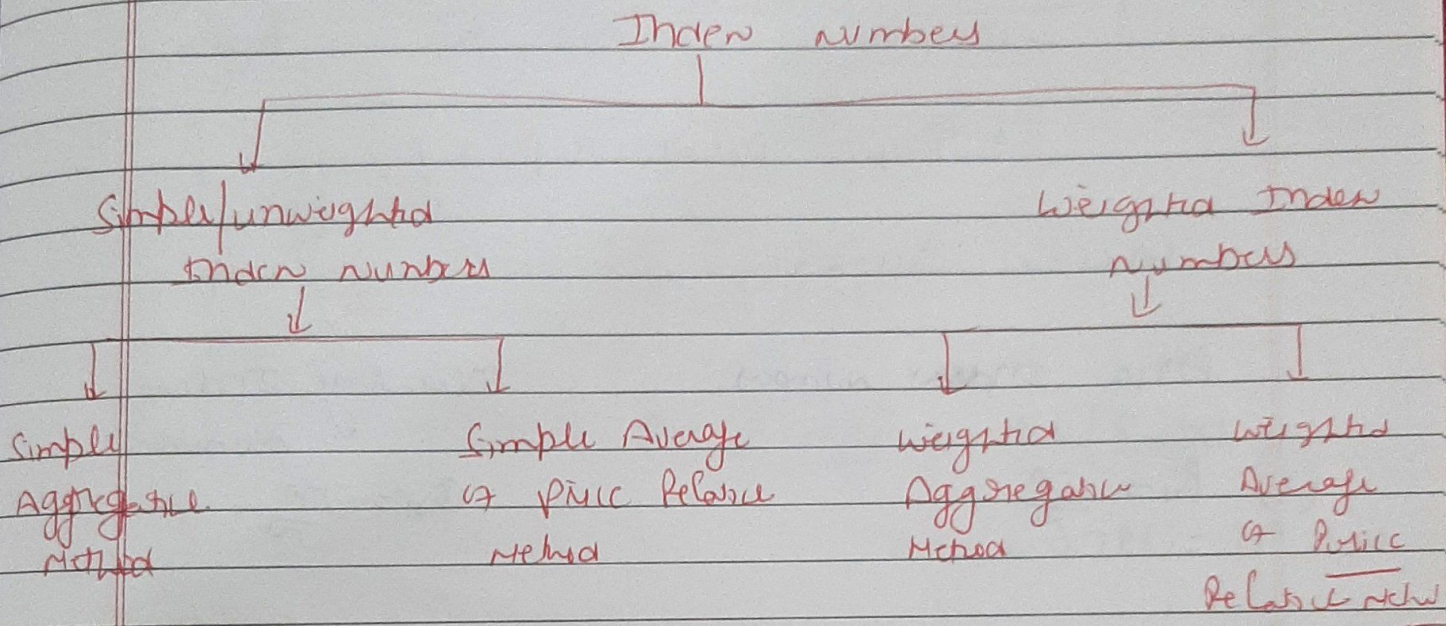 Index numbers
Simple/unweighted
Index numbers
Weighted Index
numbers
Simple
Aggregative
Method
Simple Average
of Price Relative
Method
Weighted
Aggregative
Method
Weighted
Average
of Price
Relative